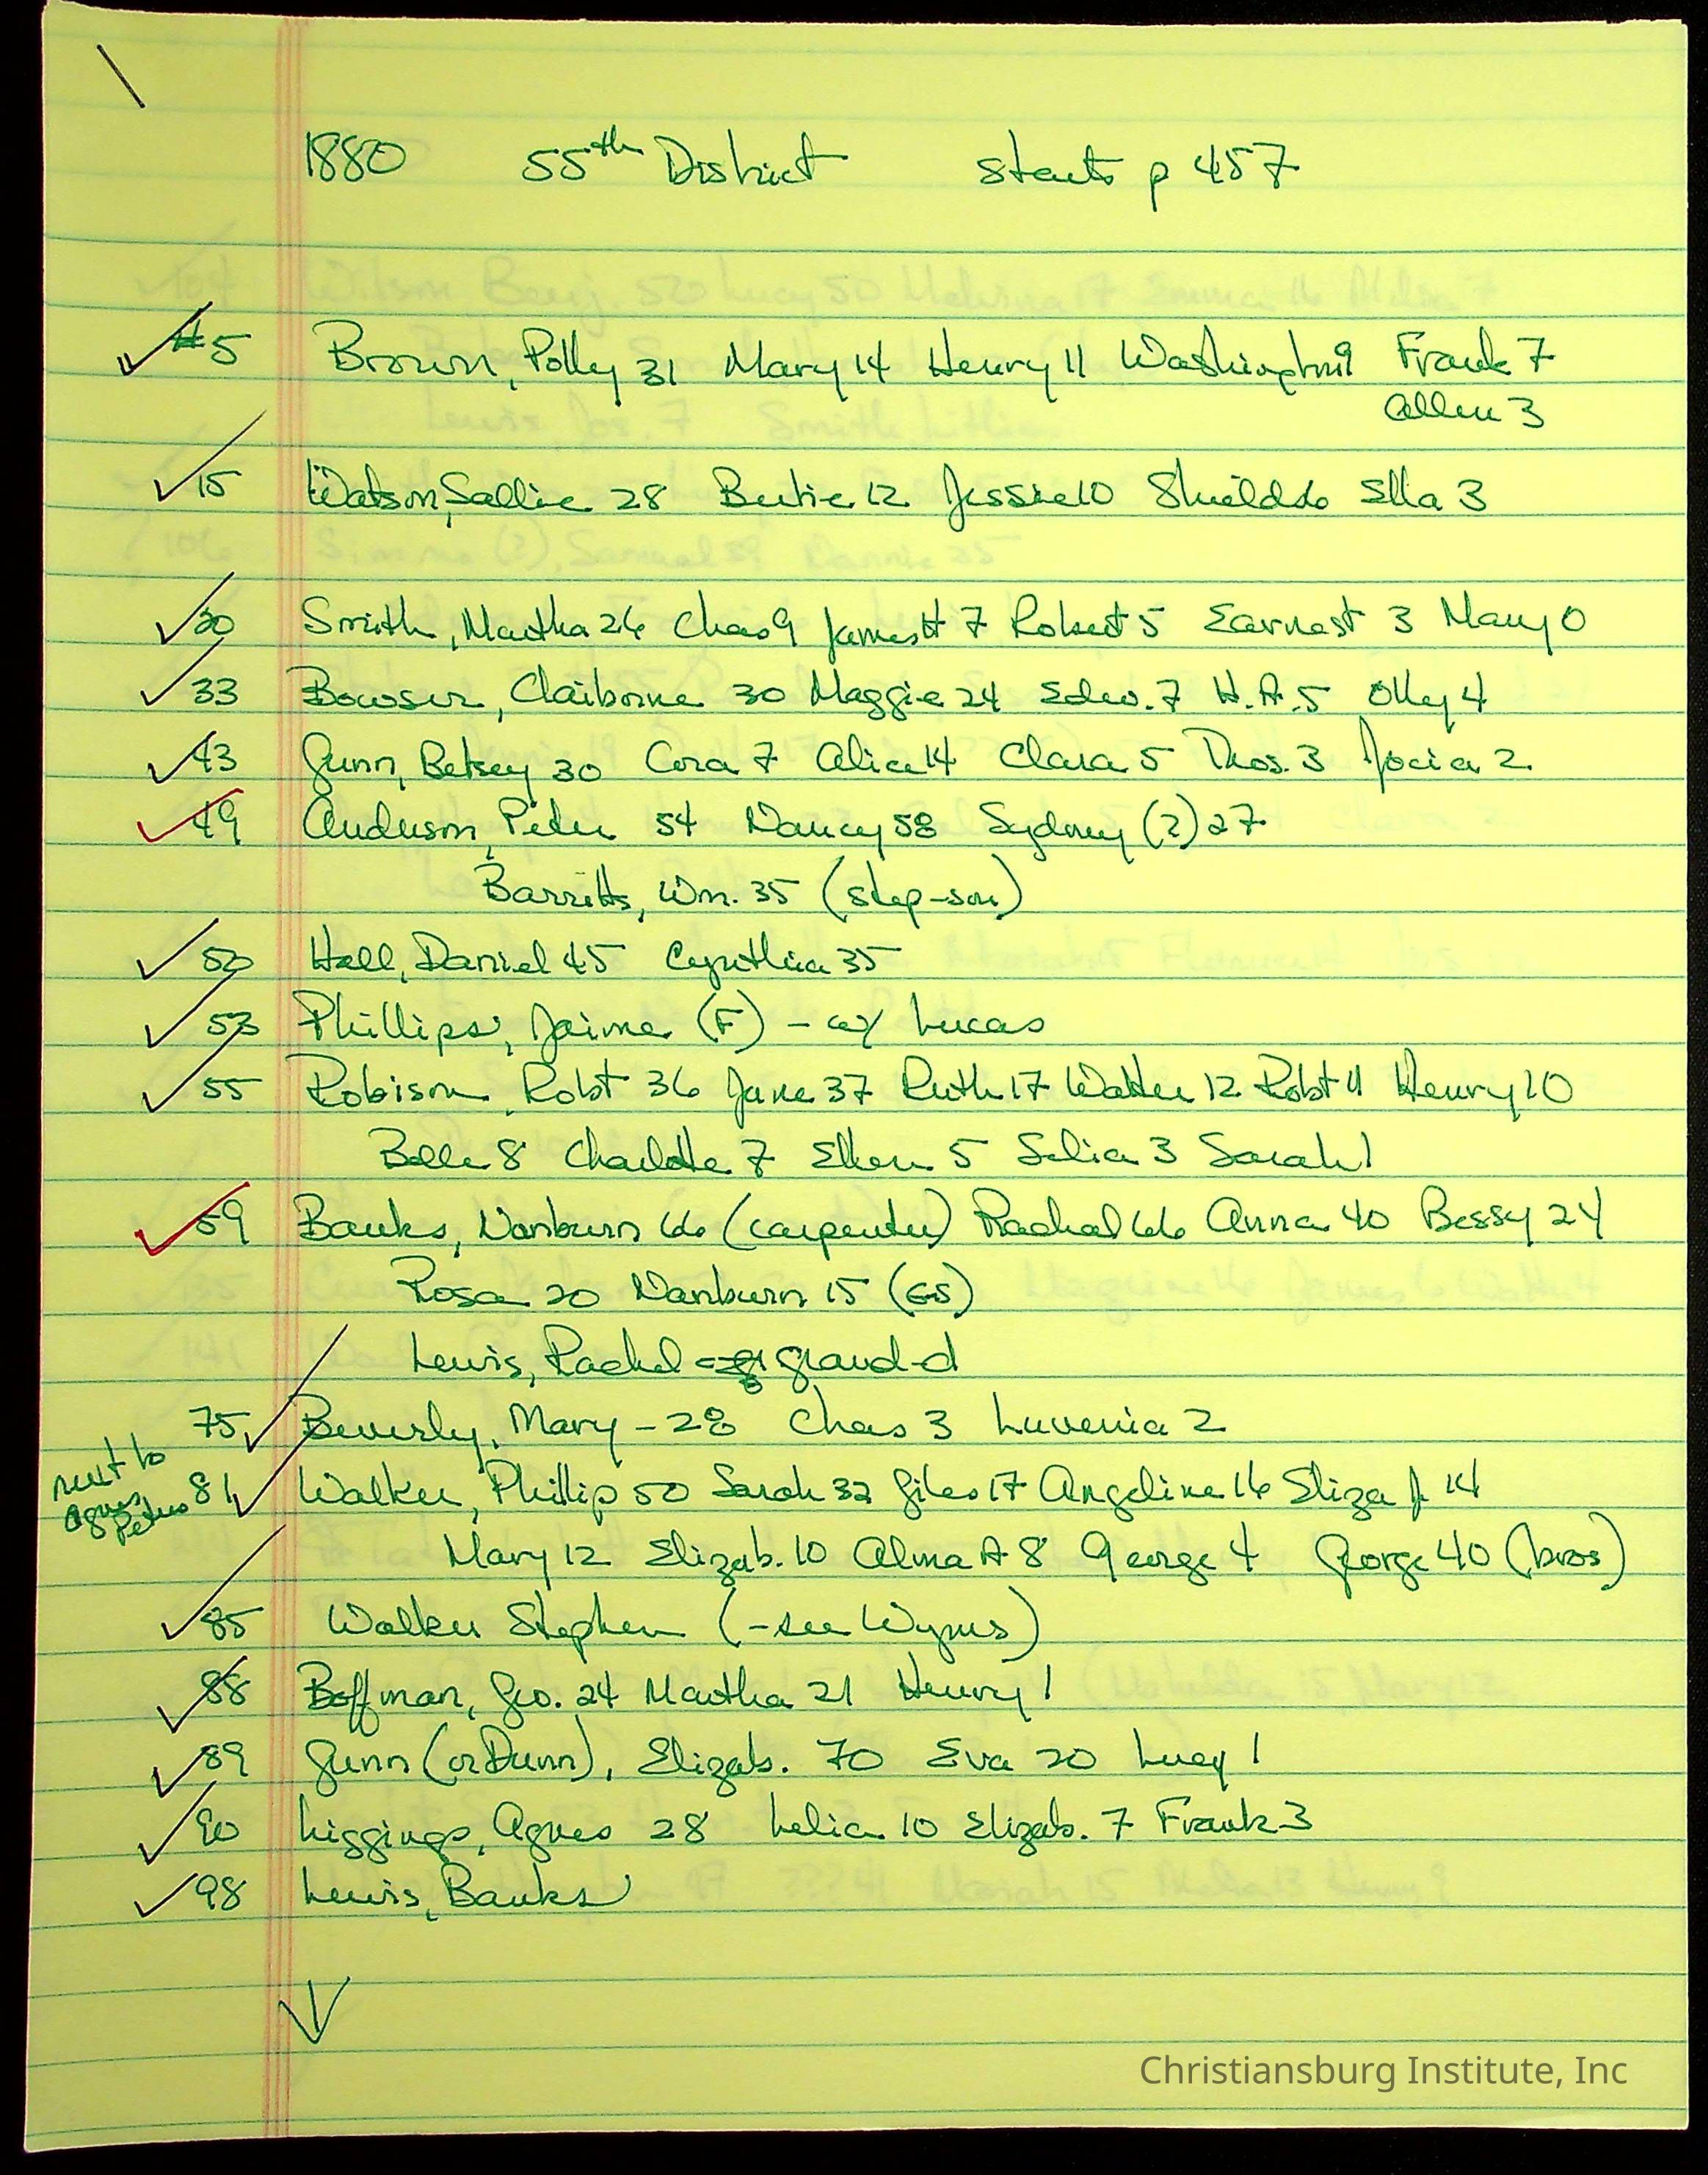 1880 55th District starts p 457
#5 Brown, Polly 31 Mary 14 Henry 11 Washington 9 Frank 7
Allen 3
15 Watson, Sallie 28 Bertie 12 Jessie 10 Shield 6 Ella 3
30 Smith, Martha 26 Chas 9 James H 7 Robert 5 Earnest 3 Mary 0
33 Bowser, Claiborne 30 Maggie 24 Edw. 7 H.A. 5 Olly 4
43 Gunn, Betsey 30 Cora 7 Alice 14 Clara 5 Thos. 3 Jocia 2
49 Anderson, Peter 54 Nancy 58 Sydney (?) 27
Barretts, Wm. 35 (step-son)
50 Hall, Daniel 45 Cynthia 35
53 Phillips, Jaime (F) - w/ Lucas
55 Robison, Robt 36 Jane 37 Ruth 17 Walter 12 Robt 11 Henry 10
Belle 8 Charlotte 7 Ellen 5 Selia 3 Sarah 1
59 Banks, Wanburn 66 (carpenter) Rachal 66 Anna 40 Bessy 24
Rosa 20 Wanburn 15 (GS)
Lewis, Rachel grand-d
75 Beverly, Mary - 28 Chas 3 Luvenia 2
next to
Agnes
Peters
81 Walker, Phillip 50 Sarah 32 Giles 17 Angeline 16 Eliza J 14
Mary 12 Elizab. 10 Alma A 8 George 4 George 40 (bros)
85 Walker Stephen (- see Wynes)
88 Boffman, Geo. 24 Martha 21 Henry 1
89 Gunn (or Dunn), Elizab. 70 Eva 20 Lucy 1
90 Liggings, Agnes 28 Lelia 10 Elizab. 7 Frank 3
98 Lewis, Banks
Christiansburg Institute, Inc